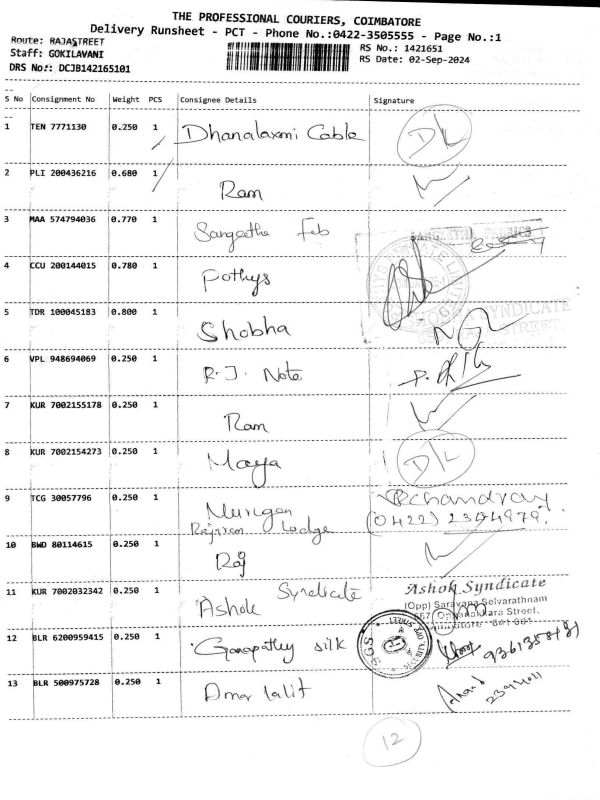 THE PROFESSIONAL COURIERS, COIMBATORE
Delivery Runsheet - PCT - Phone No.:0422-3505555 - Page No.:1
Route: RAJASTREET
Staff: GOKILAVANI
DRS No.: DCJB142165101
RS No.: 1421651
RS Date: 02-Sep-2024
S No Consignment No Weight PCS Consignee Details Signature
1 TEN 7771130 0.250 1 Dhanalaxmi Cable D/L
2 PLI 200436216 0.680 1 Ram
3 MAA 574794036 0.770 1 Sangeetha Feb
4 CCU 200144015 0.780 1 Pothys
SYNDICATE
STREET.
5 TDR 100045183 0.800 1 Shobha
6 VPL 948694069 0.250 1 R.J. Note
7 KUR 7002155178 0.250 1 Ram
8 KUR 7002154273 0.250 1 Maya D/L
9 TCG 30057796 0.250 1 Murugan
Lodge
(0422)
10 BWD 80114615 0.250 1 Raj
11 KUR 7002032342 0.250 1 Ashok Syndicate
Ashok Syndicate
(Opp) Saravana Selvarathnam
12 BLR 6200959415 0.250 1 Ganapathy silk
13 BLR 500975728 0.250 1 Amar lalit
Anand
12